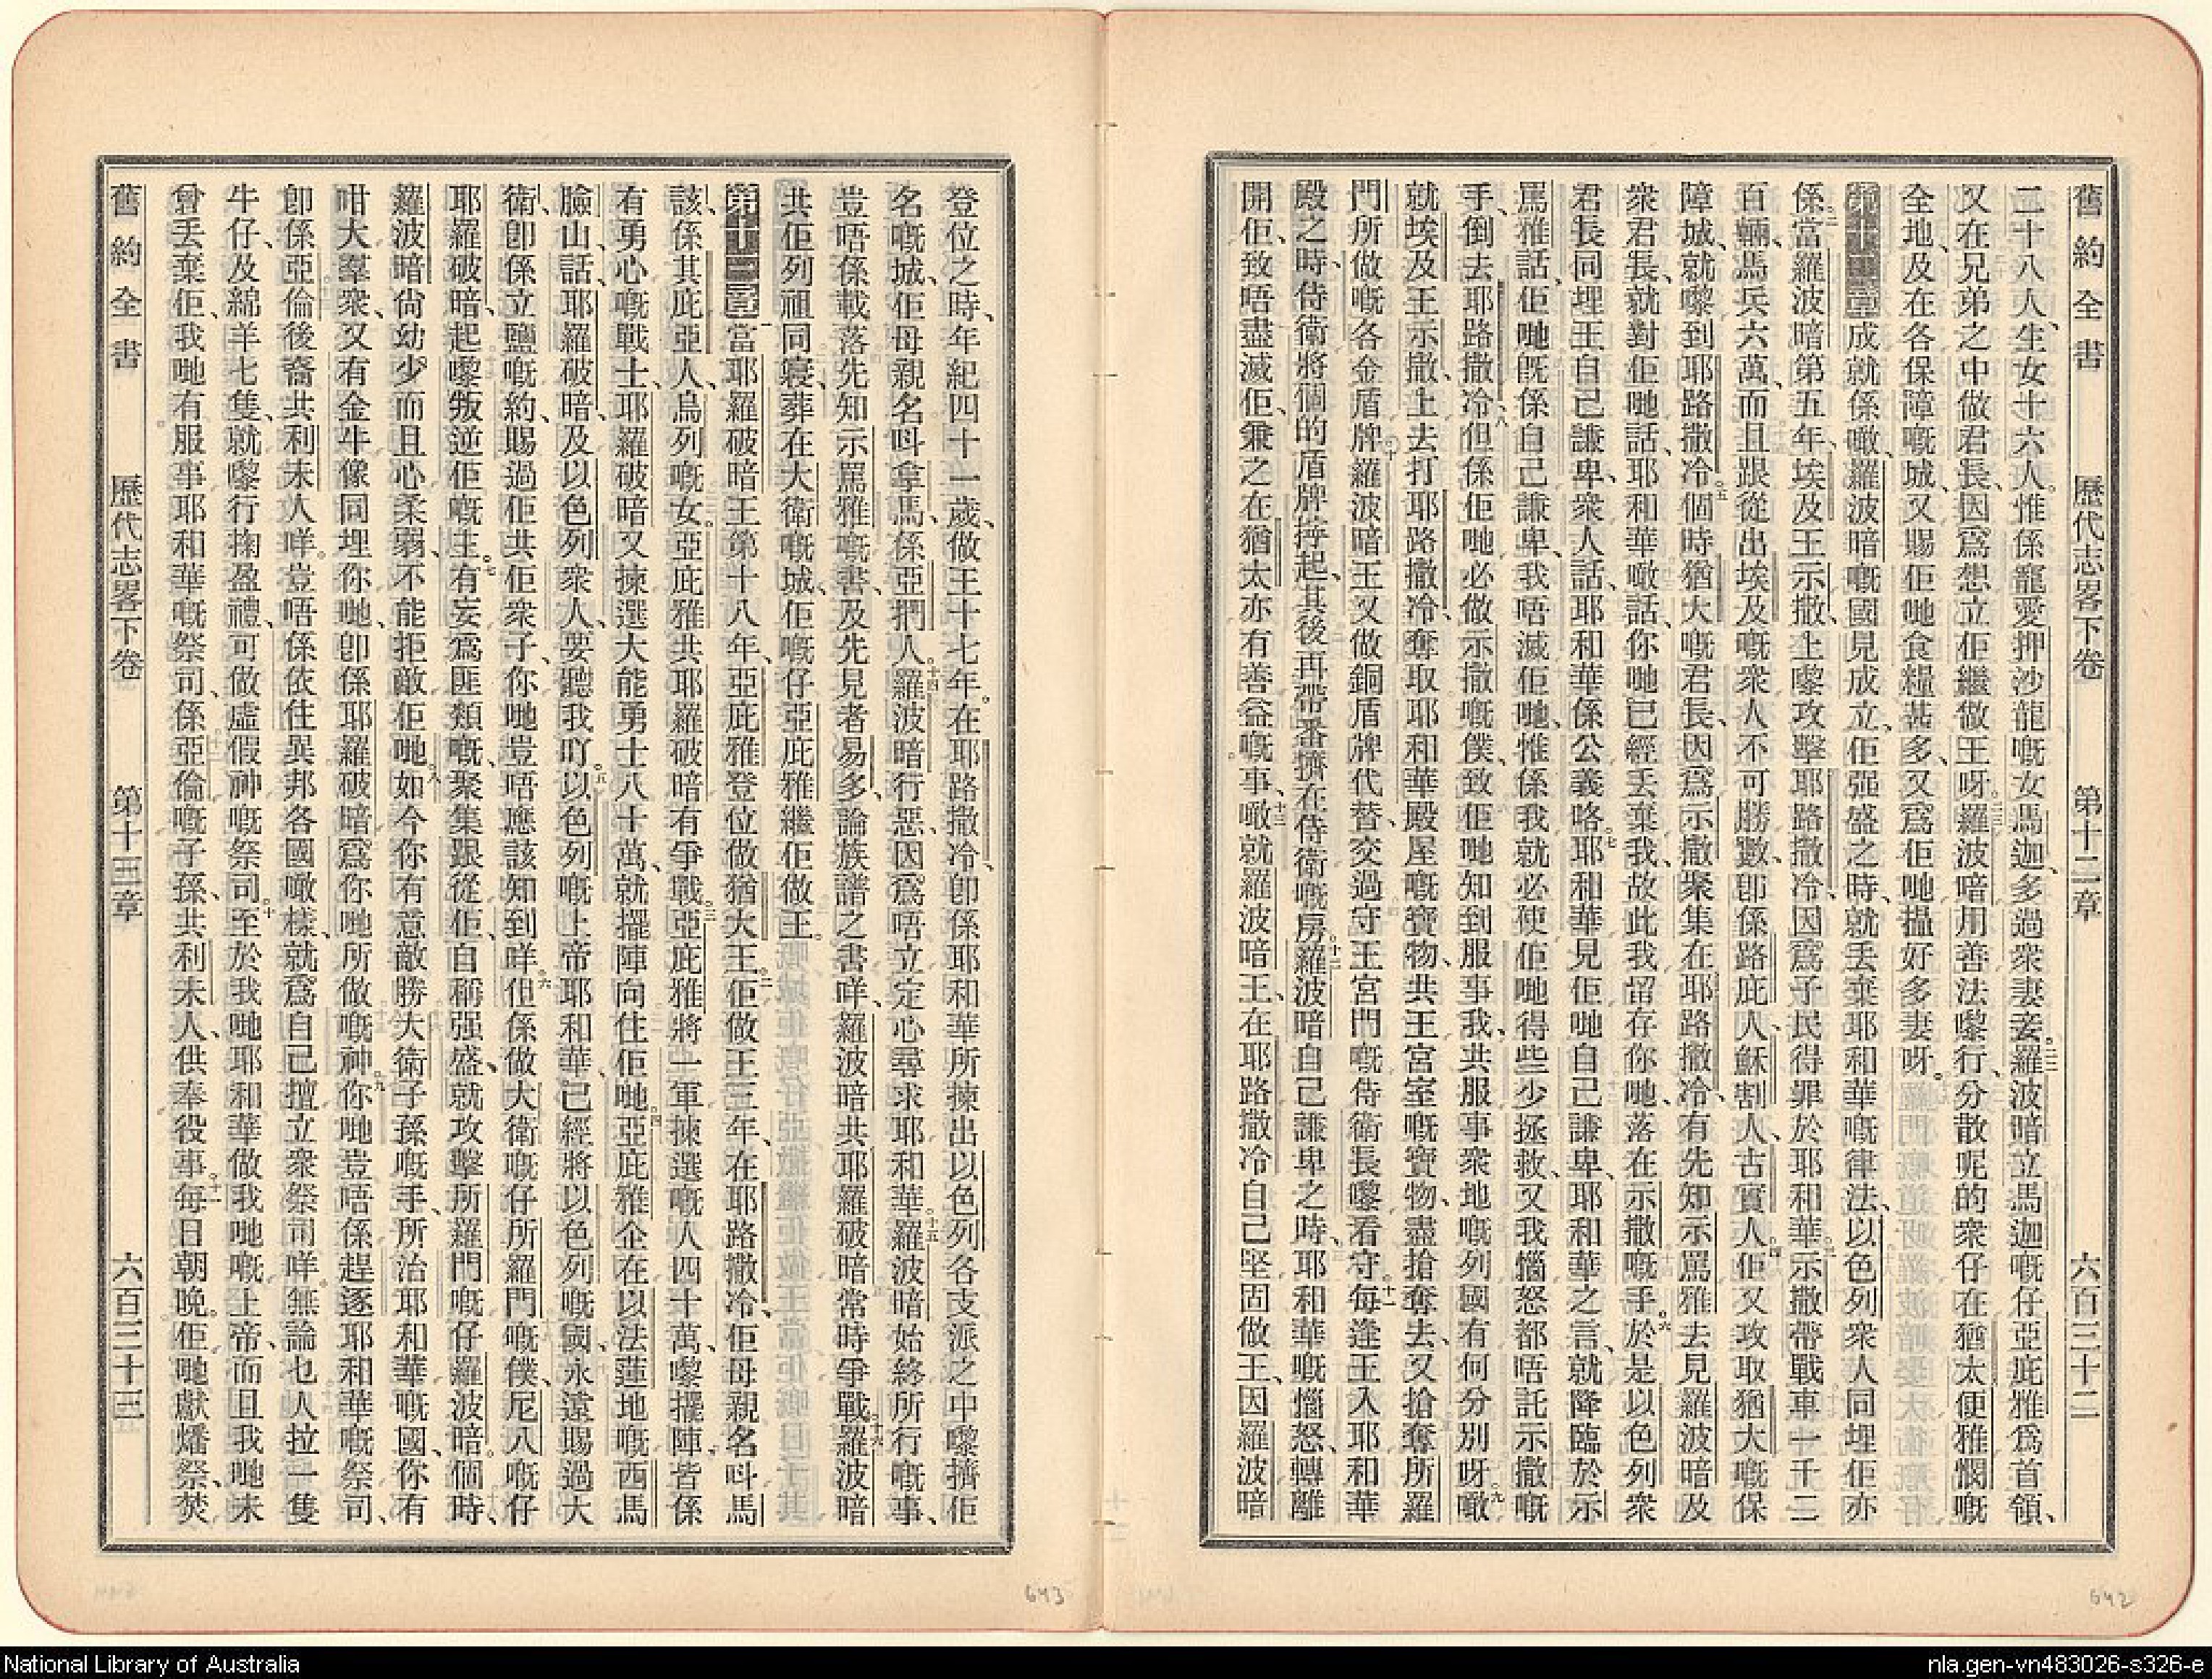 舊約全書 歷代志畧下卷 第十二章 六百三十二
二十八人、生女十六人。惟係寵愛押沙龍嘅女馬迦、多過衆妻妾。二二羅波暗立馬迦嘅仔亞庇雅爲首領、
又在兄弟之中做君長、因爲想立佢繼做王呀。二三羅波暗用善法嚟行、分散呢的衆仔在猶太便雅憫嘅
全地、及在各保障嘅城、又賜佢哋食糧甚多、又爲佢哋攝好多妻呀。
第十二章成就係噉、羅波暗嘅國見成立、佢强盛之時、就丢棄耶和華嘅律法、以色列衆人同埋佢亦
係。二當羅波暗第五年、埃及王示撒、上嚟攻擊耶路撒冷、因爲子民得罪於耶和華。三示撒帶戰車一千二
百輛、馬兵六萬、而且跟從出埃及嘅衆人不可勝數、卽係路庇人、穌割人、古實人。四佢又攻取猶大嘅保
障城、就嚟到耶路撒冷。五個時猶大嘅君長、因爲示撒聚集在耶路撒冷、有先知示罵雅去見羅波暗及
衆君長、就對佢哋話、耶和華噉話、你哋已經丢棄我、故此我留存你哋、落在示撒嘅手。六於是以色列衆
君長同埋王自己謙卑、衆人話、耶和華係公義咯。七耶和華見佢哋自己謙卑、耶和華之言、就降臨於示
罵雅話、佢哋旣係自己謙卑、我唔滅佢哋、惟係我就必使佢哋得些少拯救、又我惱怒都唔託示撒嘅
手、倒去耶路撒冷。八但係佢哋必做示撒嘅僕、致佢哋知到服事我、共服事衆地嘅列國有何分別呀。九噉
就埃及王示撒、上去打耶路撒冷、奪取耶和華殿屋嘅寶物、共王宮室嘅寶物、盡搶奪去、又搶奪所羅
門所做嘅各金盾牌。十羅波暗王又做銅盾牌代替、交過守王宮門嘅侍衛長嚟看守。十一每逢王入耶和華
殿之時、侍衛將個的盾牌拧起、其後再帶番擠在侍衛嘅房。十二羅波暗自己謙卑之時、耶和華嘅惱怒、轉離
開佢、致唔盡滅佢、兼之在猶太亦有善益嘅事。十三噉就羅波暗王、在耶路撒冷自己堅固做王、因羅波暗
登位之時、年紀四十一歲、做王十七年。在耶路撒冷、卽係耶和華所揀出以色列各支派之中嚟擠佢
名嘅城、佢母親名呌拿馬、係亞捫人。十四羅波暗行惡、因爲唔立定心尋求耶和華。十五羅波暗始終所行嘅事、
豈唔係載落先知示罵雅嘅書、及先見者易多、論族譜之書咩、羅波暗共耶羅破暗常時爭戰。十六羅波暗
共佢列祖同寢、葬在大衛嘅城、佢嘅仔亞庇雅繼佢做王。
第十三章一當耶羅破暗王第十八年、亞庇雅登位做猶大王。二佢做王三年、在耶路撒冷、佢母親名呌馬
該、係其庇亞人、烏列嘅女。亞庇雅共耶羅破暗有爭戰。三亞庇雅將一軍揀選嘅人四十萬、嚟擺陣、皆係
有勇心嘅戰士、耶羅破暗又揀選大能勇士八十萬、就擺陣向住佢哋。四亞庇雅企在以法蓮地嘅西馬
臉山、話、耶羅破暗、及以色列衆人、要聽我吖。五以色列嘅上帝耶和華、已經將以色列嘅國、永遠賜過大
衛、卽係立鹽嘅約、賜過佢共佢衆子、你哋豈唔應該知到咩。六但係做大衛嘅仔所羅門嘅僕、尼八嘅仔
耶羅破暗、起嚟叛逆佢嘅主。七有妄爲匪類嘅、聚集跟從佢、自稱强盛、就攻擊所羅門嘅仔羅波暗。個時、
羅波暗尙幼少、而且心柔弱、不能拒敵佢哋。八如今你有意敵勝大衛子孫嘅手、所治耶和華嘅國、你有
咁大羣衆、又有金牛像同埋你哋、卽係耶羅破暗爲你哋所做嘅神。九你哋豈唔係趕逐耶和華嘅祭司、
卽係亞倫後裔共利未人咩。豈唔係依住異邦各國噉樣、就爲自己擅立衆祭司咩。無論乜人拉一隻
牛仔、及綿羊七隻、就嚟行掬盈禮、可做虛假神嘅祭司。十至於我哋、耶和華做我哋嘅上帝、而且我哋未
曾丢棄佢、我哋有服事耶和華嘅祭司、係亞倫嘅子孫、共利未人、供奉役事。十一每日朝晚。佢哋獻燔祭、焚
舊約全書 歷代志畧下卷 第十三章 六百三十三
643
642
National Library of Australia
nla.gen-vn483026-s326-e